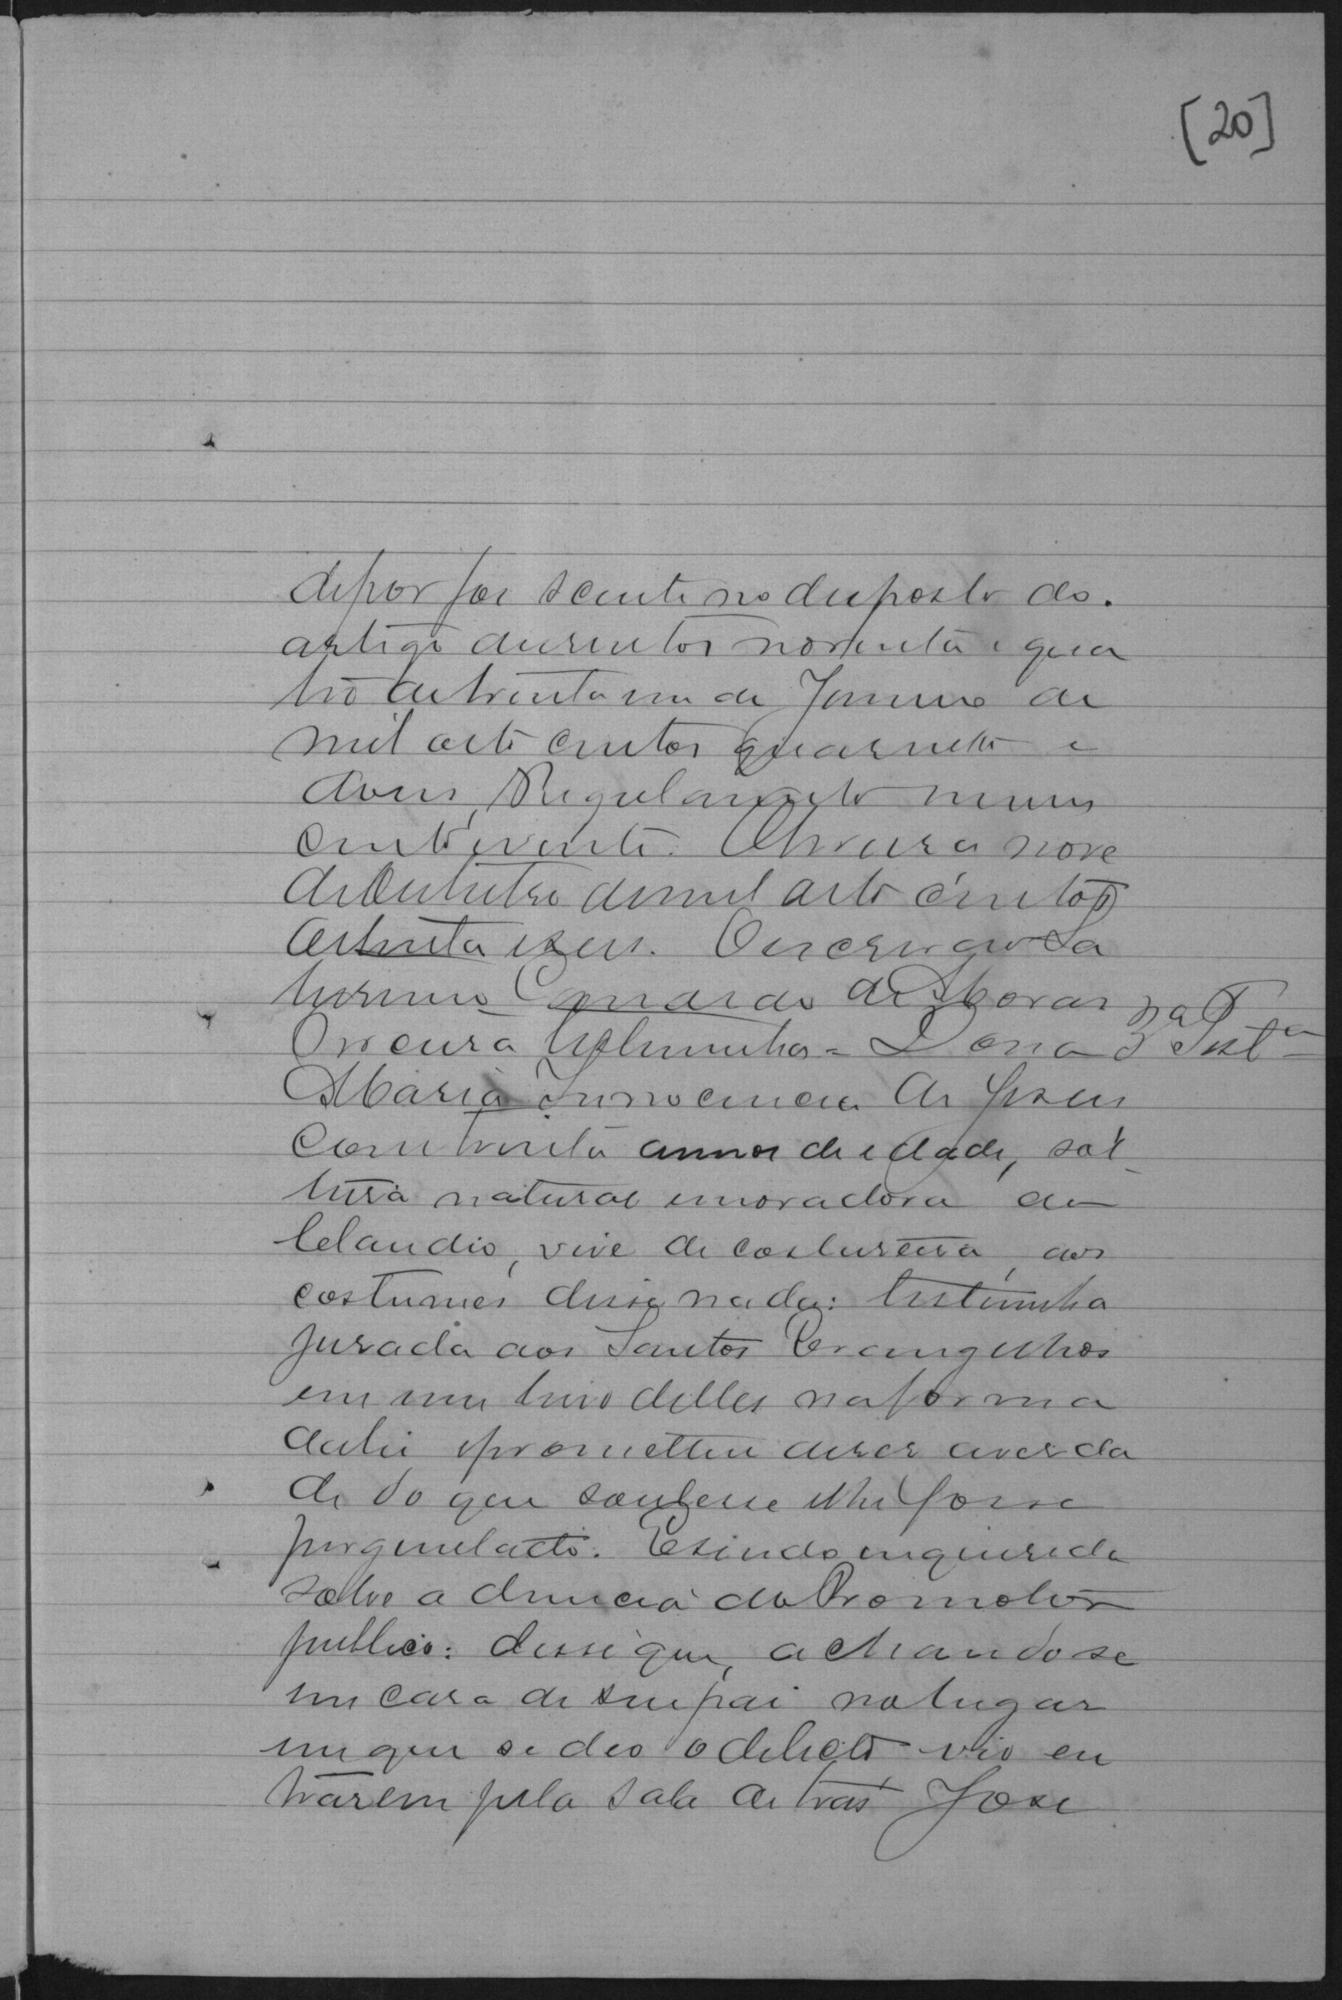 [20]
depor foi sciente no disposto do.
artigo dusentos noventa e qua
tro de trinta um de Janeiro de
mil oito centos quarenta e
dous, Regulamento numero
cento e vinte. Oliveira nove
de Outubro de mil oito centos
oitenta e seis. O escrivão da
termo Camardo de Moraes
Terceira testemunha = Dona 3ª Test.ª
Maria Innocencia de Jesus
com trinta annos de edade, sol-
teira natural e moradora do
Claudio, vive de costureira, aos
costumes disse nada: testemunha
jurada aos Santos Evangelhos
em um livro delles na forma
da lei e prometteu diser averda
de do que soubesse e lhe fosse
perguntado. E sendo inquerida
sobre a denuncia do Promotor
publico: disse que, achando se
em casa de seu pai no lugar
em que se deo o delicto vio en
trarem pela sala de tras José